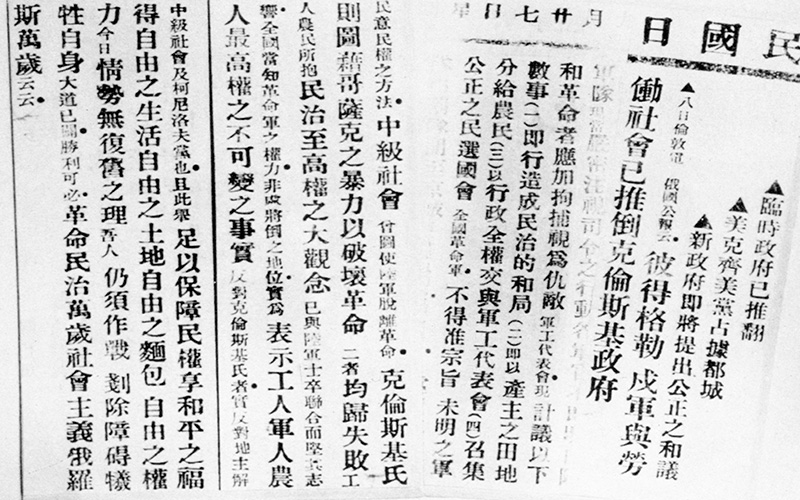 民國日
月廿七日 星
▲臨時政府已推翻
▲美克齊美黨占據都城
▲新政府即將提出公正之和議
▲八日倫敦電 俄國公報云 彼得格勒戍軍與勞
働社會已推倒克倫斯基政府
軍隊當嚴密注視司令之行動
和革命者應加拘捕視爲仇敵 軍工代表會現計議以下
數事(一)即行造成民治的和局(二)即以產主之田地
分給農民(三)以行政全權交與軍工代表會(四)召集
公正之民選國會 全國革命軍 不得准宗旨 未明之軍
民意民權之方法 中級社會 曾圖使陸軍脫離革命 克倫斯基氏
則圖藉哥薩克之暴力以破壞革命 二者均歸失敗 工
人農民所抱民治至高權之大觀念 已與陸軍士卒聯合而堅其志
響全國當知革命軍之權力 非處將倒之地位實爲 表示工人軍人農
人最高權之不可變之事實 反對克倫斯基氏者 實反對地主解
中級社會及柯尼洛夫黨也 且此舉足以保障民權享和平之福
得自由之生活自由之土地自由之麵包 自由之權
力 今日情勢無復舊之理 吾人仍須作戰 剗除障碍犧
牲自身 大道已闢勝利可必 革命民治萬歲社會主義俄羅
斯萬歲云云